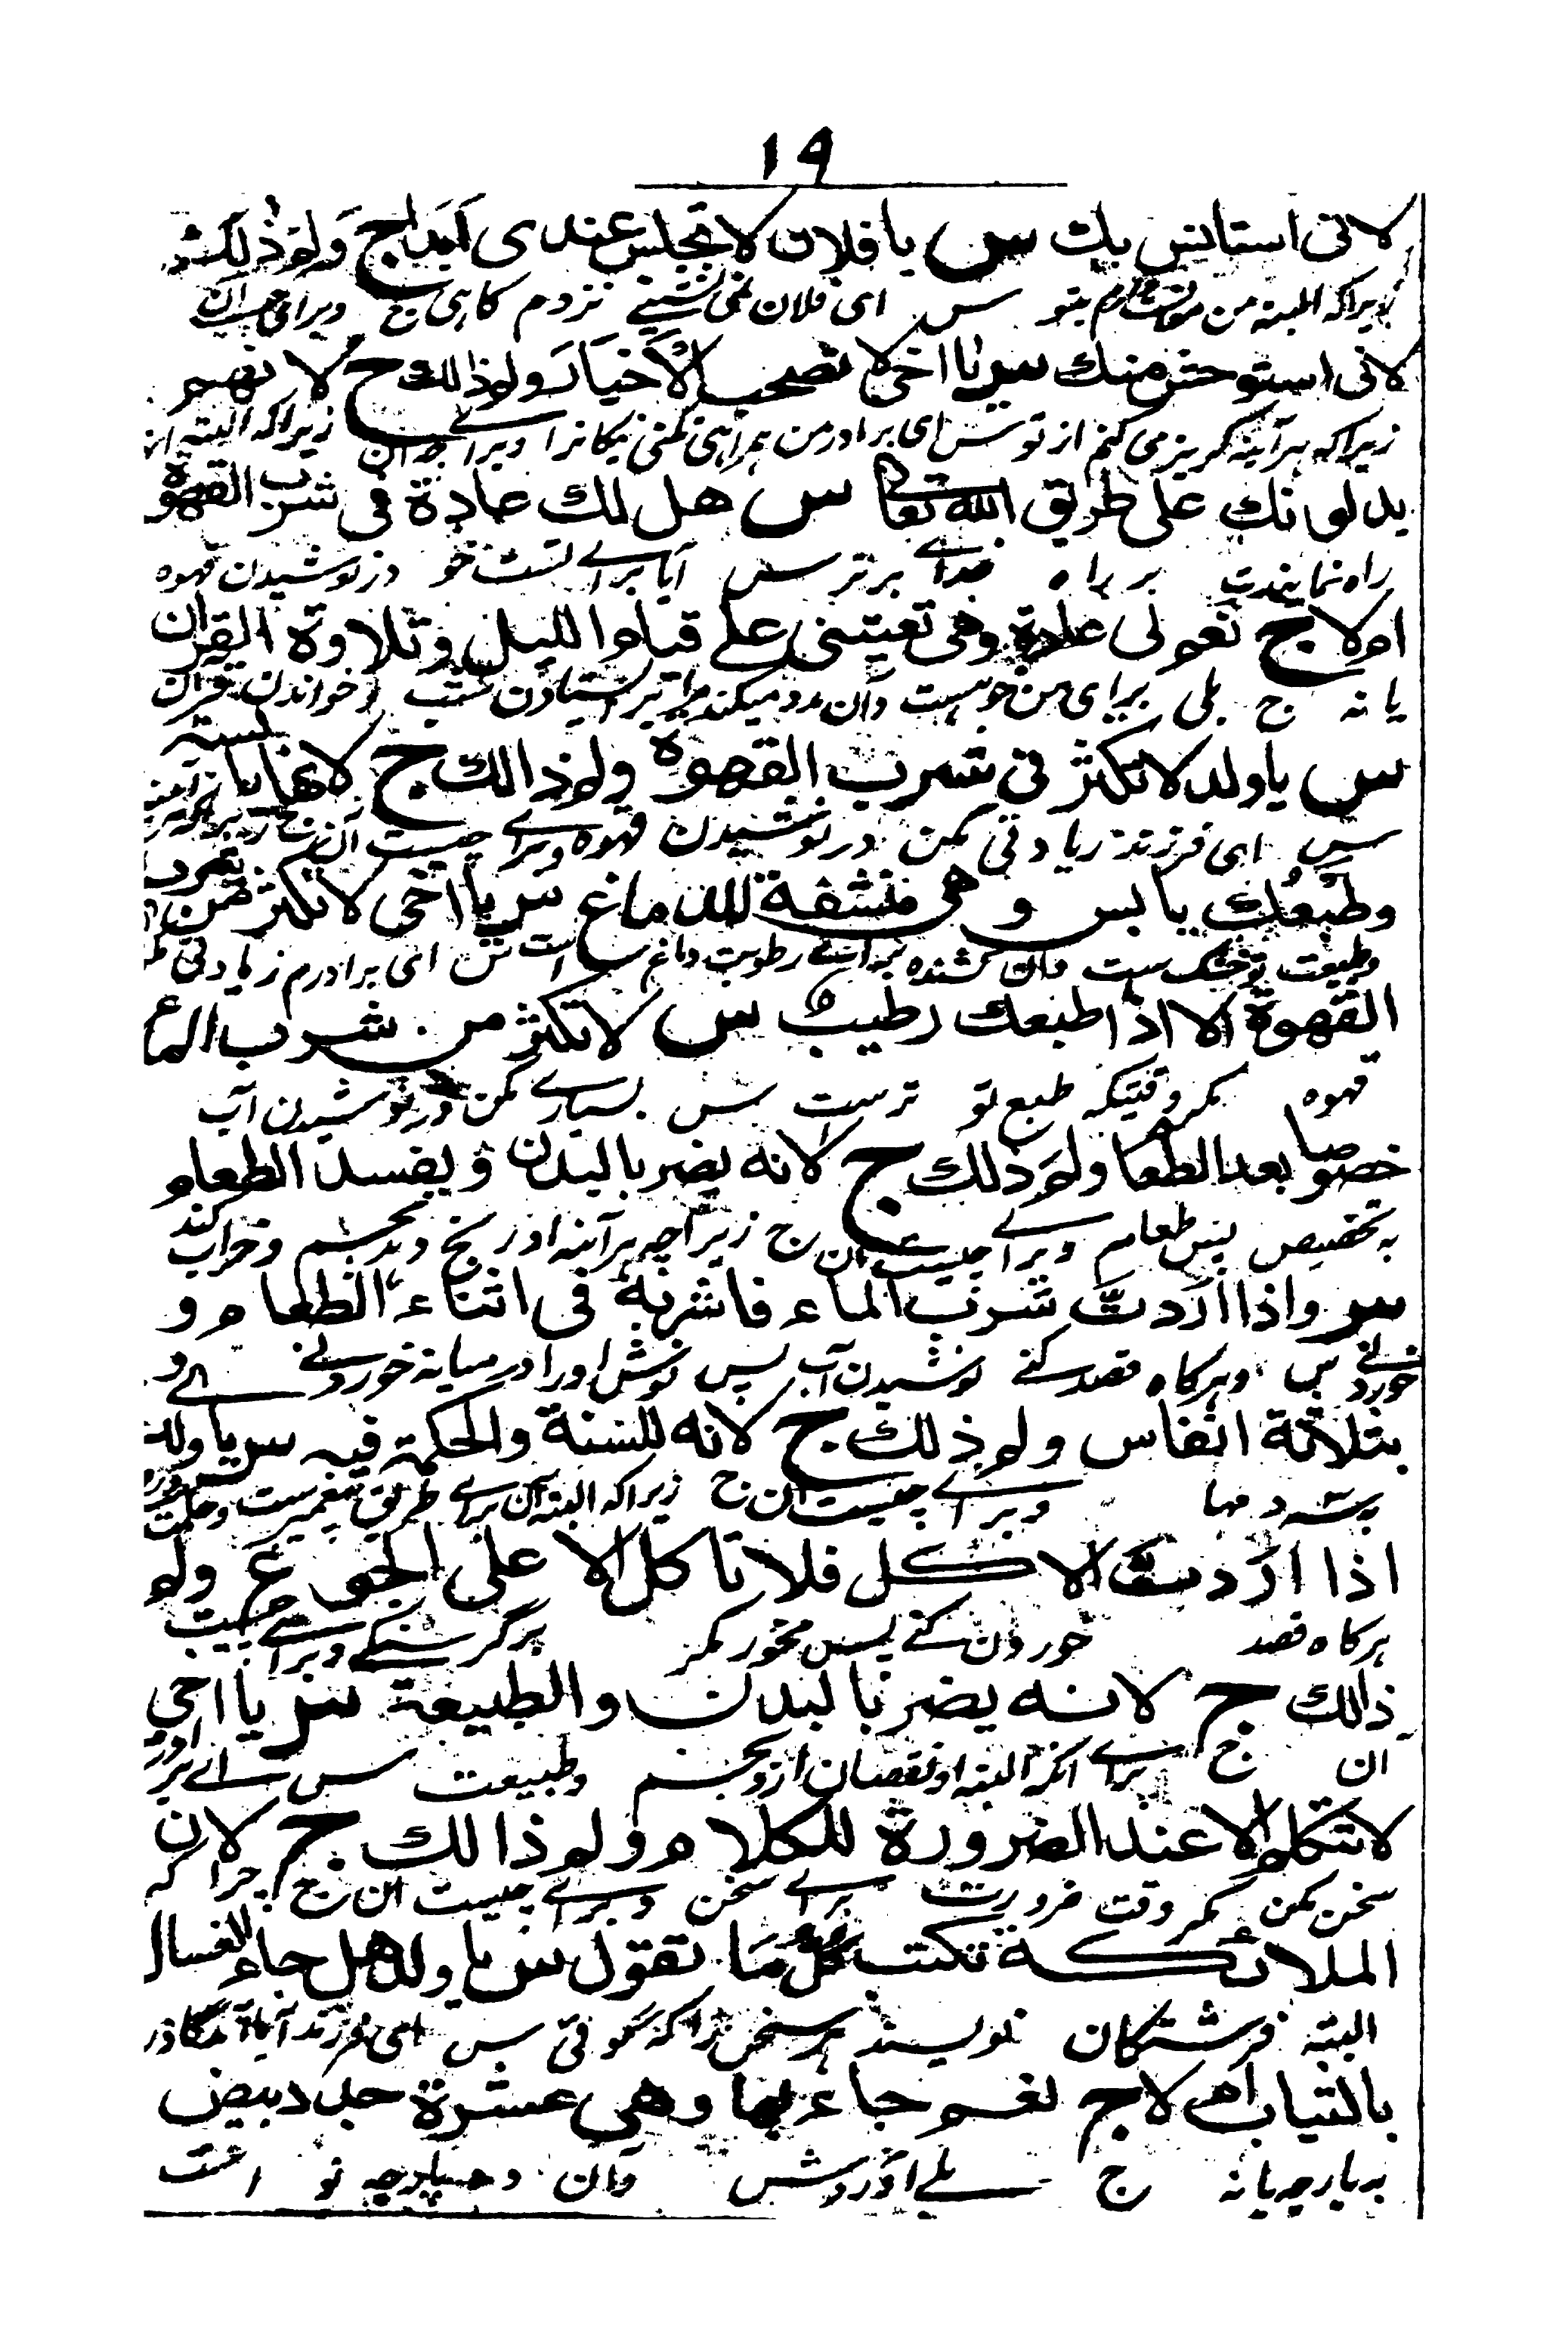 ١٩
لانی استانس بك س یا فلان لا تجلس عندی ابدا ج ولم ذلك
زیراکه البته من بتو س ای فلان نمی نشینی نزدم کاهی ج وبرای
لانی استوحش منك س یا اخی لا تصحب الاخیار ولم ذالك ج لا نهم
زیراکه هرآینه کریز می کنم از تو س ای برادر من همراهی نکنی نیکانرا وبرای چه آن زیراکه البته
یدلونك علی طریق الله تعا س هل لك عادة فی شرب القهوة
راه نمایندت بر راه خدای برتر س آیا برای تست خو در نوشیدن قهوه
ام لا ج نعم لی عادة وهی تعیننی علے قیام اللیل وتلاوة القرآن
یا نه ج بلی برای من خو هست وآن مدد میکند مرا بر استادن شب وخواندن قرآن
س یا ولد لا تکثر فی شرب القهوة ولم ذالك ج لانها یابسة
س ای فرزند زیادتی مکن در نوشیدن قهوه وبرای چیست آن ج
وطبعك یابس وهی منشفة للدماغ س یا اخی لا تکثر من شرب
وطبیعت تو خشك ست رطوبت دماغ است س ای برادرم زیادتی
القهوة الا اذا طبعك رطیب س لا تکثر من شرب الماء
قهوه مکر وقتیکه طبع تو ترست س بسیاری مکن در نوشیدن آب
خصوصا بعد الطعام ولم ذلك ج لانه یضر بالبدن ویفسد الطعام
به تخصیص پس طعام وبرای چیست آن ج زیراچه هرآینه او رنج دهد بجسم وخراب کند
س واذا اردت شرب الماء فاشربه فی اثناء الطعام و
خوردنی س وهرکاه قصد کنی نوشیدن آب پس نوش اورا در میانه خوردنی و
بثلاثة انفاس ولم ذلك ج لانه للسنة والحکمة فیه س یا ولد
به سه دمها وبرای چیست آن ج زیراکه البته آن برای طریق پیغمبرست وحکمت
اذا اردت الاکل فلا تاکل الا علی الجوع ولم
هرکاه قصد خوردن کنی پس مخور مکر بر گرسنگی وبرای چیست
ذالك ج لانه یضر بالبدن والطبیعة س یا اخی
آن ج برای آنکه البته او نقصان وطبیعت س ای برادر
لا تتکلم الا عند الضرورة للکلام ولم ذالك ج لان
سخن مکن مکر وقت ضرورت برای سخن وبرای چیست آن ج چرا که
الملائکة تکتب کل ما تقول س یا ولد هل جاء الغسال
البته فرشتگان نویسند هر سخن را که گوئی س ای فرزند آیا آمد گاذر
بالثیاب ام لا ج نعم جاء بها وهی عشرة جدد بیض
به پارچه یا نه ج بلے آوردش وآن ده پارچه نو است